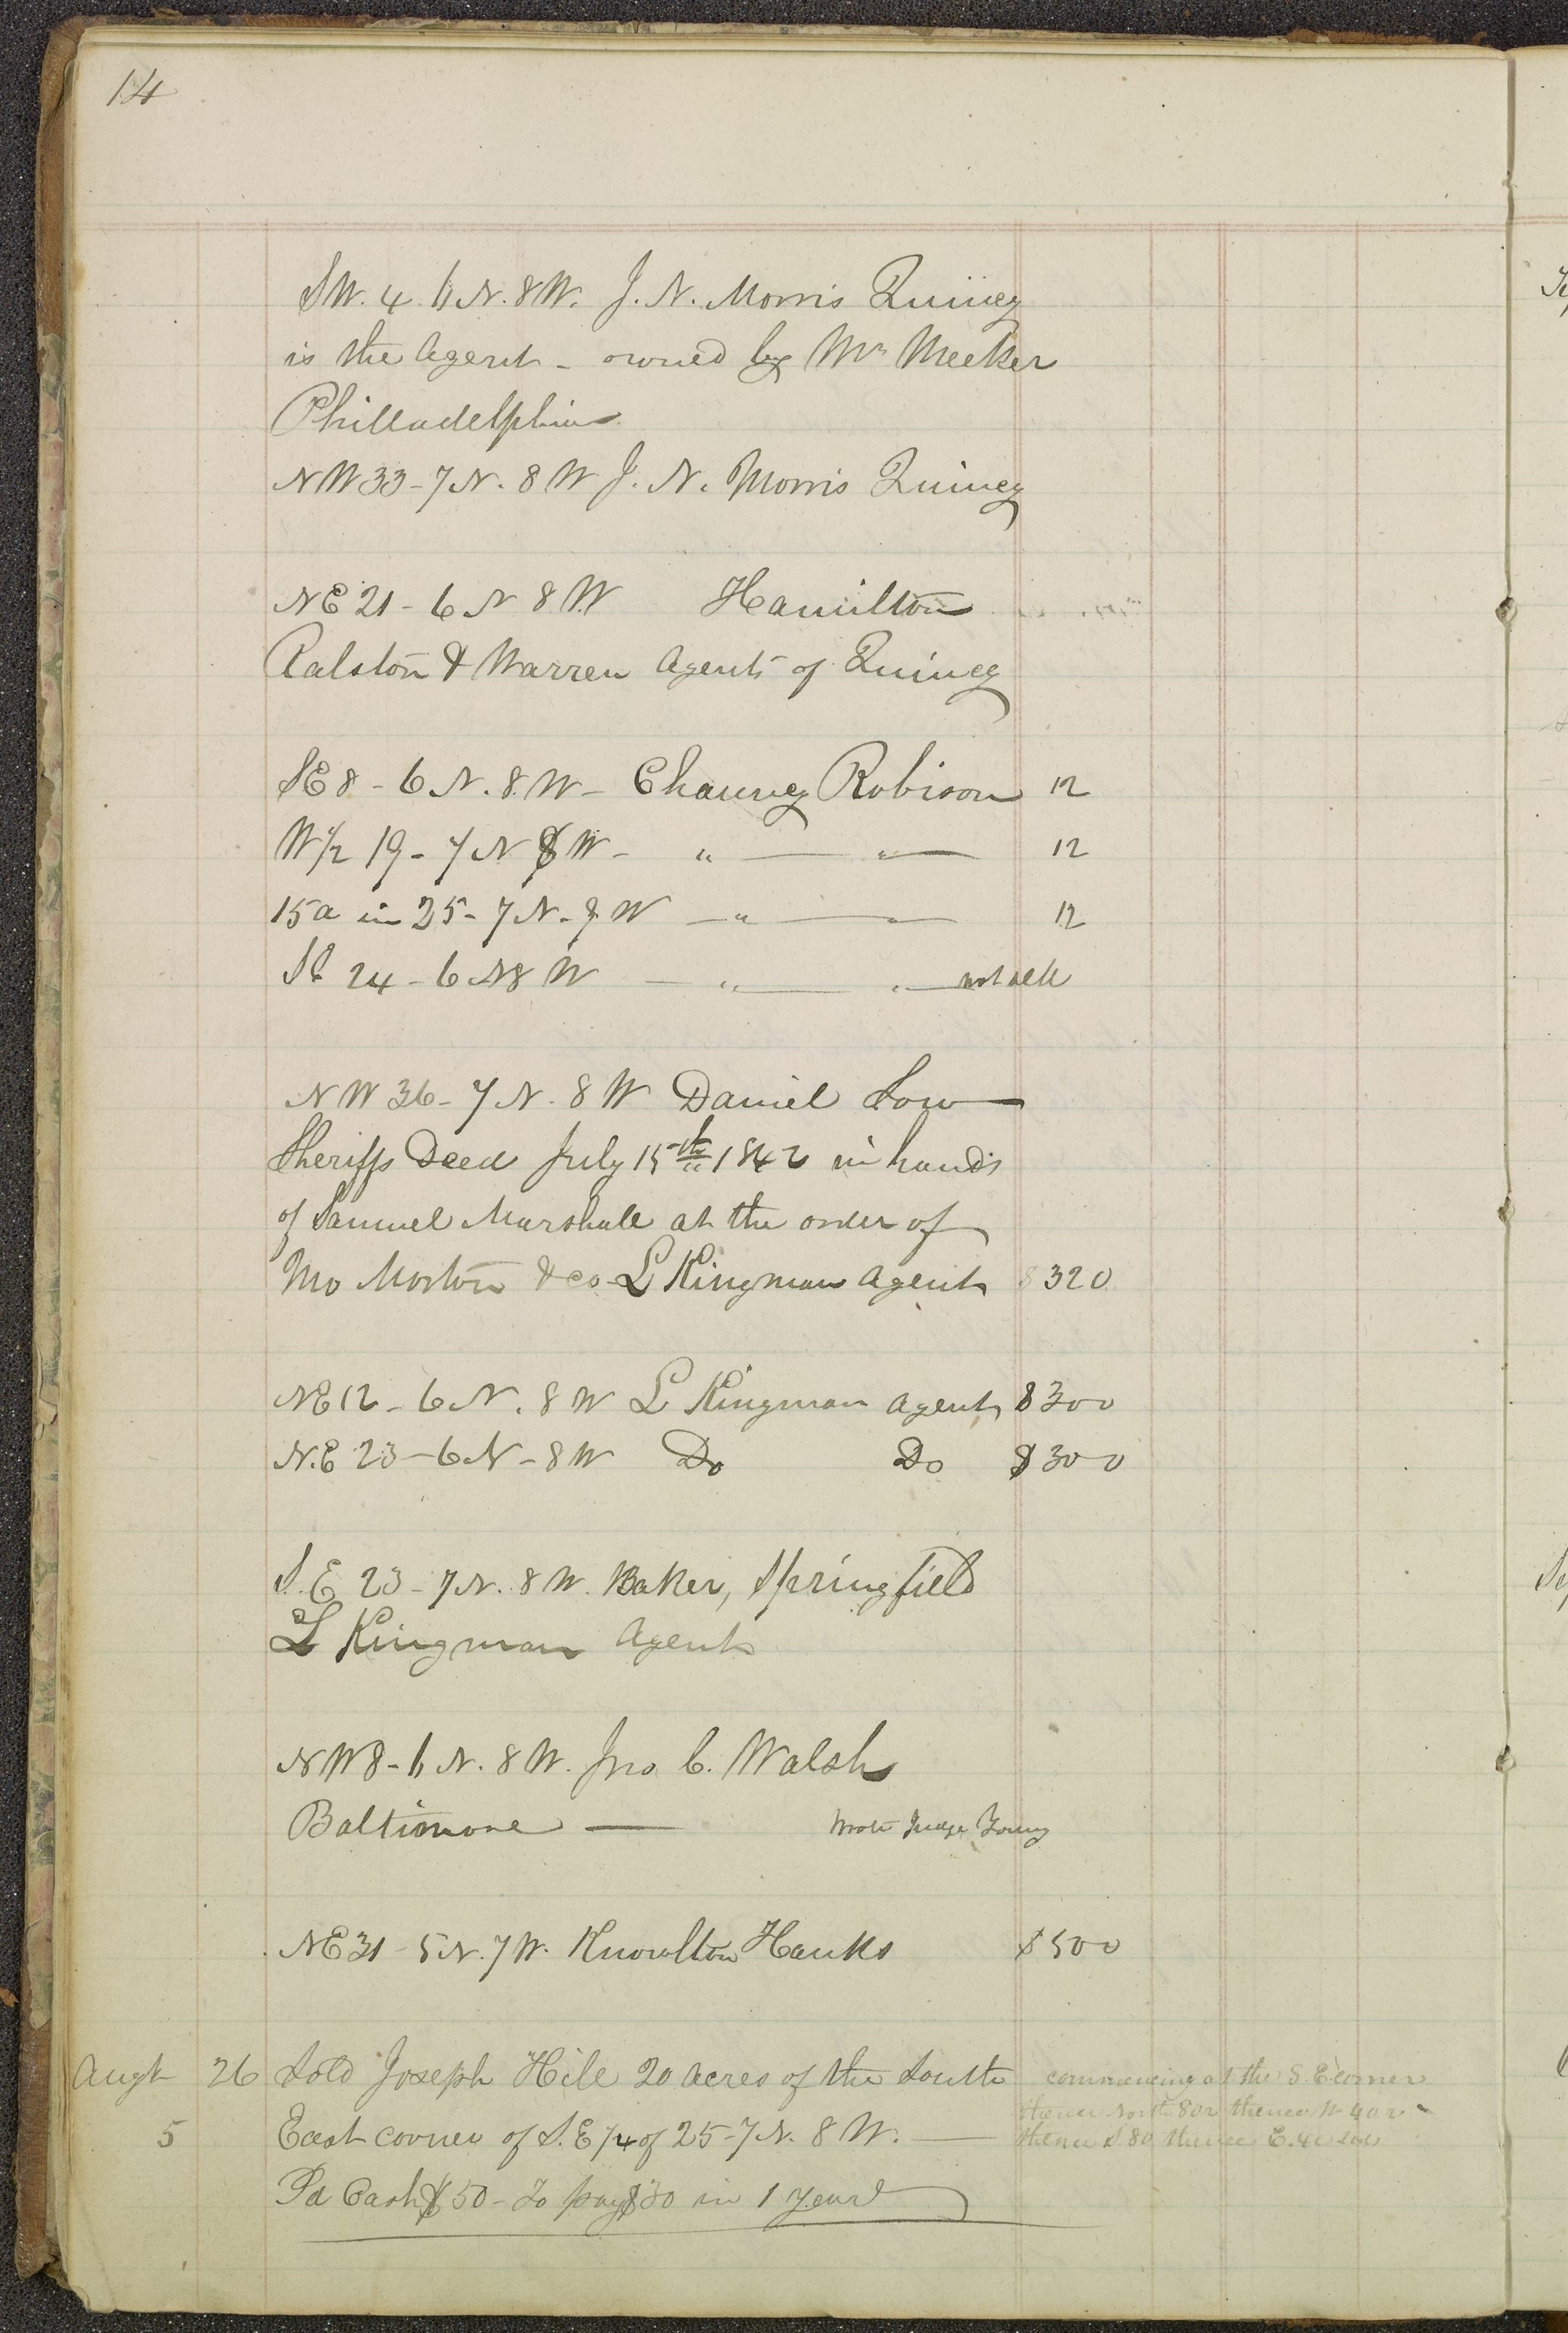 14
SW. 4. 6 N. 8 W. J. N. Morris Quincy
is the Agent - owned by Mr Meeker
Philladelphia
NW 33 - 7 N. 8 W J. N. Morris Quincy
NE 21 - 6 N 8 W Hamilton
Ralston & Warren Agents of Quincy
SE 8 - 6 N. 8 W - Chauncy Robison 12
W 1/2 19 - 7 N 8 W - " — " — 12
15 a in 25 - 7 N. 8 W — " — " — 12
SE 24 - 6 N 8 W — " — " — not sell
NW 36 - 7 N. 8 W Daniel Low —
Sheriffs Deed July 15th 1842 in hands
of Samuel Marshall at the order of
Mo Morton & co L Kingman Agent $320
NE 12 - 6 N. 8 W L Kingman Agent $300
N.E 23 - 6 N - 8 W Do Do $300
S.E 23 - 7 N. 8 W. Baker, Springfield
L Kingman Agent
NW 8 - 6 N. 8 W. Jno C. Walsh
Baltimore — Wrote Judge Young
NE 31 - 5 N. 7 W. Knowlton Hanks $500
Augt 26 Sold Joseph Hile 20 acres of the South commencing at the S. E corner
thence North 80 r thence W 40 r
5 East corner of S. E 1/4 of 25 - 7 N. 8 W. — thence S. 80 thence E. 40
Pd Cash $50 - To pay $30 in 1 year